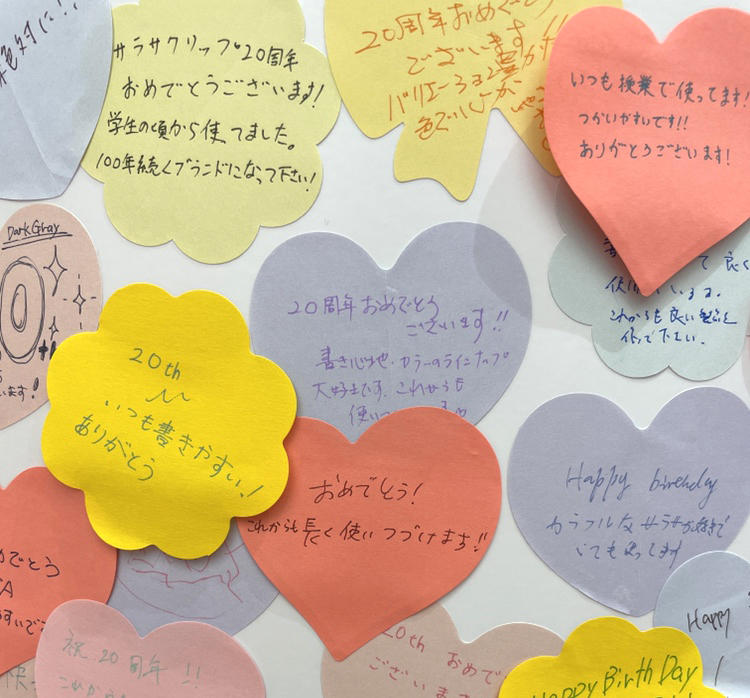 サラサクリップ20周年
おめでとうございます!
学生の頃から使ってました。
100年続くブランドになって下さい!
20周年おめでとう
ございます!!
バリエーション豊か
いつも授業で使ってます!
つかいやすいです!!
ありがとうございます!
Dark Gray
20th
いつも書きやすい!
ありがとう
20周年おめでとう
ございます!!
書き心地、カラーのラインナップ
大好きです。これからも
て良く
これからも良い製品を
作って下さい。
おめでとう!
これからも長く使いつづけます!!
Happy birthday
カラフルなサラサが好きで
いつも使ってます
おめでとう
祝20周年!!
20th おめで
ございま
Happy
HAPPY BirthDay